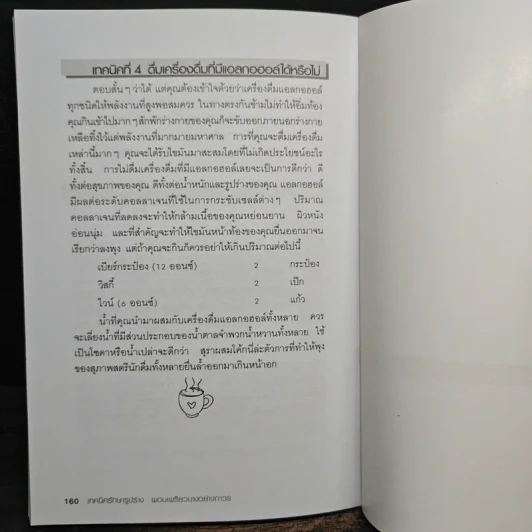 เทคนิคที่ 4 ดื่มเครื่องดื่มที่มีแอลกอฮอล์ได้หรือไม่
ตอบสั้นๆว่าได้ แต่คุณต้องเข้าใจด้วยว่าเครื่องดื่มแอลกอฮอล์
ทุกชนิดให้พลังงานที่สูงพอสมควร ในทางตรงกันข้ามไม่ทำให้อิ่มท้อง
คุณกินเข้าไปมากๆสักพักร่างกายของคุณก็จะขับออกภายนอกร่างกาย
เหลือทิ้งไว้แต่พลังงานที่มากมายมหาศาล การที่คุณจะดื่มเครื่องดื่ม
เหล่านี้มากๆ คุณจะได้รับไขมันมาสะสมโดยที่ไม่เกิดประโยชน์อะไร
ทั้งสิ้น การไม่ดื่มเครื่องดื่มที่มีแอลกอฮอล์เลยจะเป็นการดีกว่า ดี
ทั้งต่อสุขภาพของคุณ ดีทั้งต่อน้ำหนักและรูปร่างของคุณ แอลกอฮอล์
มีผลต่อระดับคอลลาเจนที่ใช้ในการกระชับเซลล์ต่างๆ ปริมาณ
คอลลาเจนที่ลดลงจะทำให้กล้ามเนื้อของคุณหย่อนยาน ผิวหนัง
อ่อนนุ่ม และที่สำคัญจะทำให้ไขมันหน้าท้องของคุณยื่นออกมาจน
เรียกว่าลงพุง แต่ถ้าคุณจะกินก็ควรอย่าให้เกินปริมาณต่อไปนี้
เบียร์กระป๋อง (12 ออนซ์) 2 กระป๋อง
วิสกี้ 2 เป๊ก
ไวน์ (6 ออนซ์) 2 แก้ว
น้ำที่คุณนำมาผสมกับเครื่องดื่มแอลกอฮอล์ทั้งหลาย ควร
จะเลี่ยงน้ำที่มีส่วนประกอบของน้ำตาลจำพวกน้ำหวานทั้งหลาย ใช้
เป็นโซดาหรือน้ำเปล่าจะดีกว่า สุราผสมโค้กนี่ล่ะตัวการที่ทำให้พุง
ของสุภาพสตรีนักดื่มทั้งหลายยื่นล้ำออกมาเกินหน้าอก
160 เทคนิครักษารูปร่าง ผอมเพรียวบางอย่างถาวร